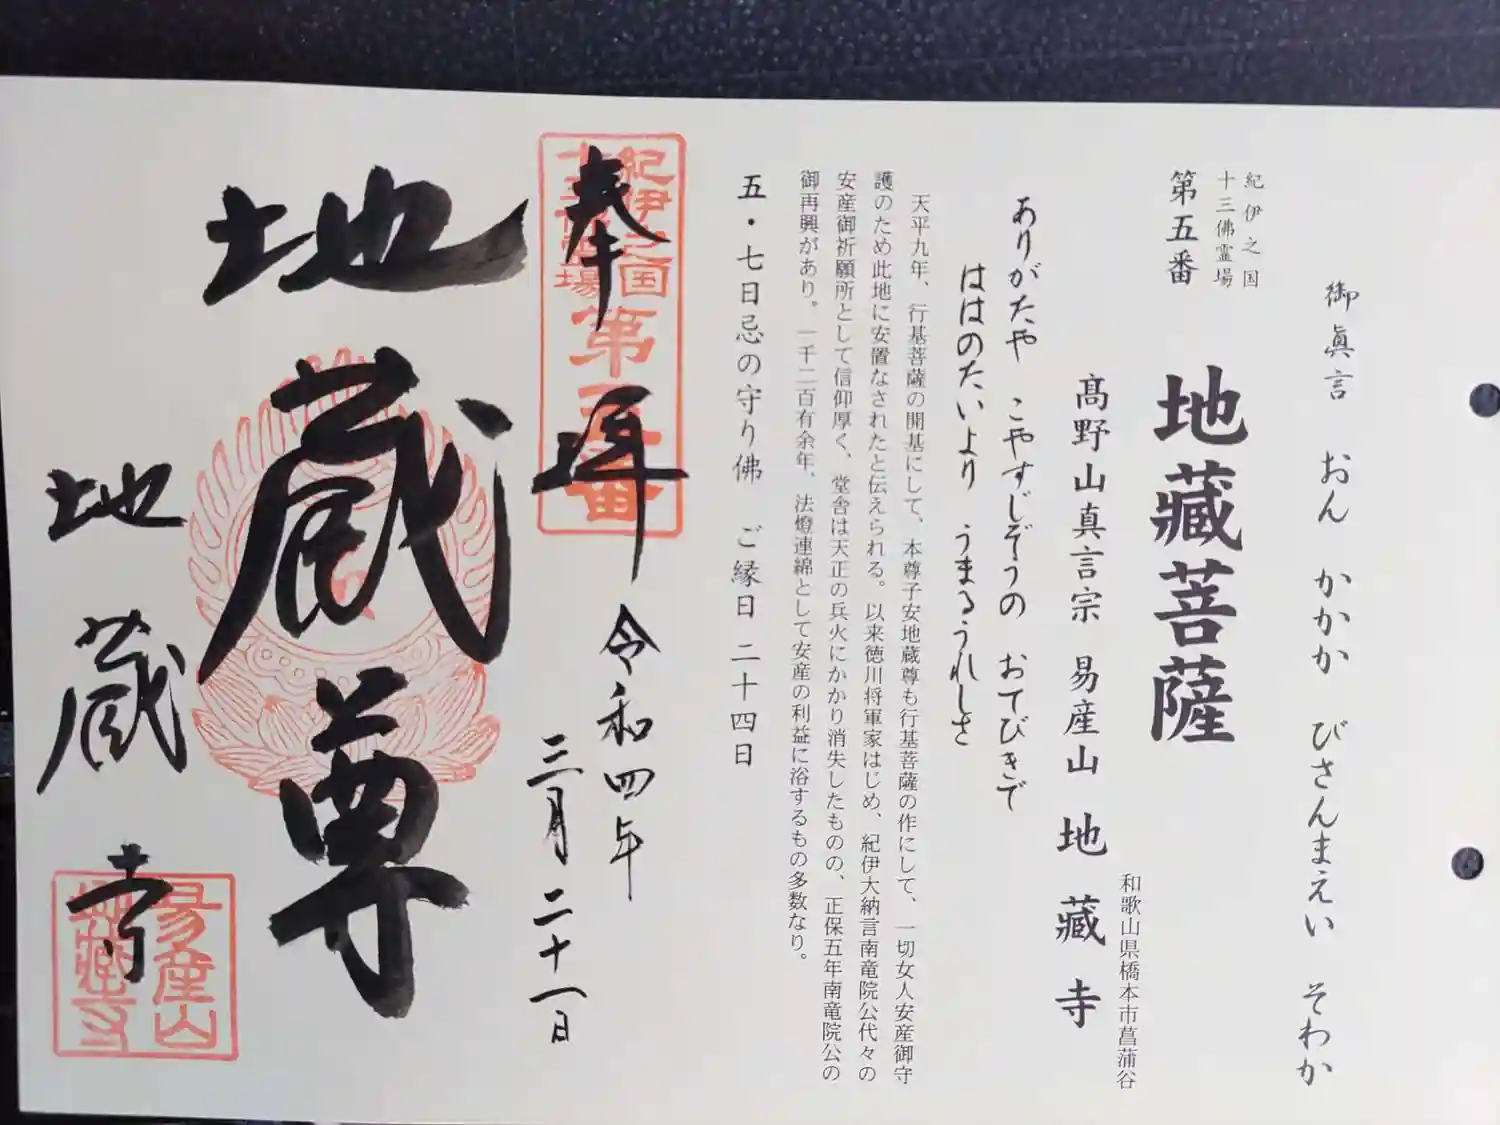 御眞言　おん　かかか　びさんまえい　そわか
紀伊之国
十三佛霊場
第五番
地藏菩薩
和歌山県橋本市菖蒲谷
髙野山真言宗　易産山　地藏寺
ありがたや　こやすじぞうの　おてびきで
ははのたいより　うまるうれしさ
天平九年、行基菩薩の開基にして、本尊子安地蔵尊も行基菩薩の作にして、一切女人安産御守
護のため此地に安置なされたと伝えられる。以来徳川将軍家はじめ、紀伊大納言南竜院公代々の
安産御祈願所として信仰厚く、堂舎は天正の兵火にかかり消失したものの、正保五年南竜院公の
御再興があり。一千二百有余年、法燈連綿として安産の利益に浴するもの多数なり。
五・七日忌の守り佛　ご縁日　二十四日
紀伊之国
十三佛霊場
第五番
奉拝
令和四年
三月二十一日
地蔵尊
地蔵寺
易産山
地藏寺